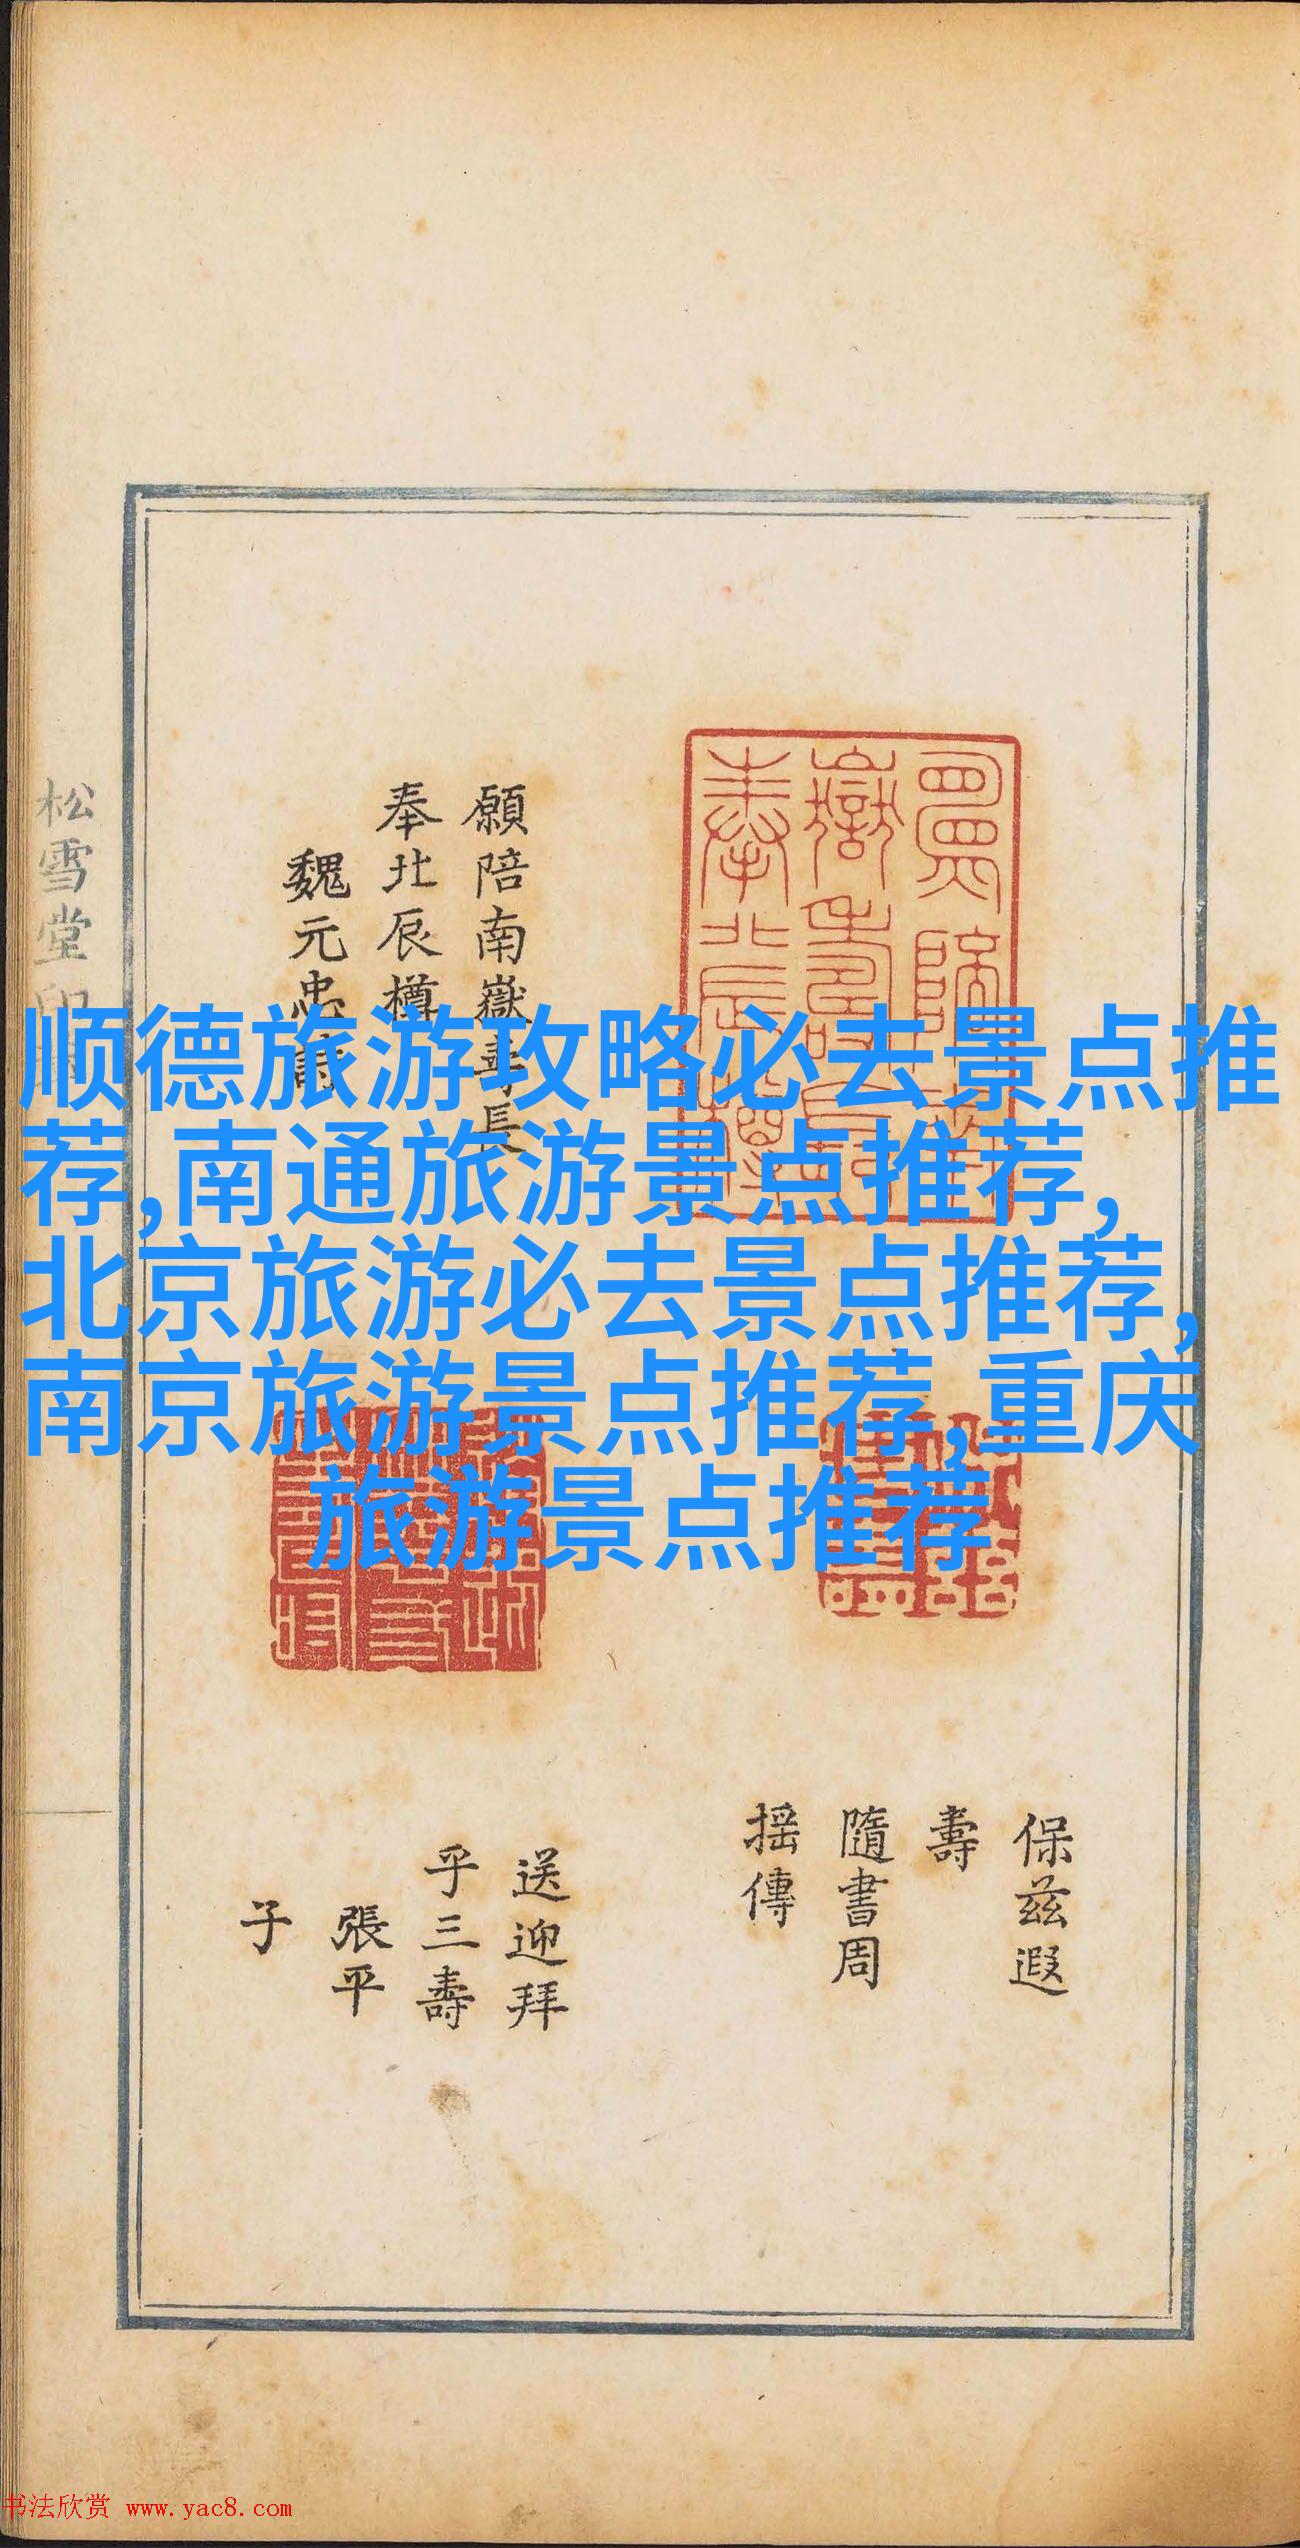 顺德旅游攻略必去景点推
荐,南通旅游景点推荐,
北京旅游必去景点推荐,
南京旅游景点推荐,重庆
旅游景点推荐
願陪南嶽壽長
奉北辰樽
魏元忠詩
保茲遐
壽
隨書周
搖傳
送迎拜
乎三壽
張平
子
松雪堂印
书法欣赏 www.yac8.com